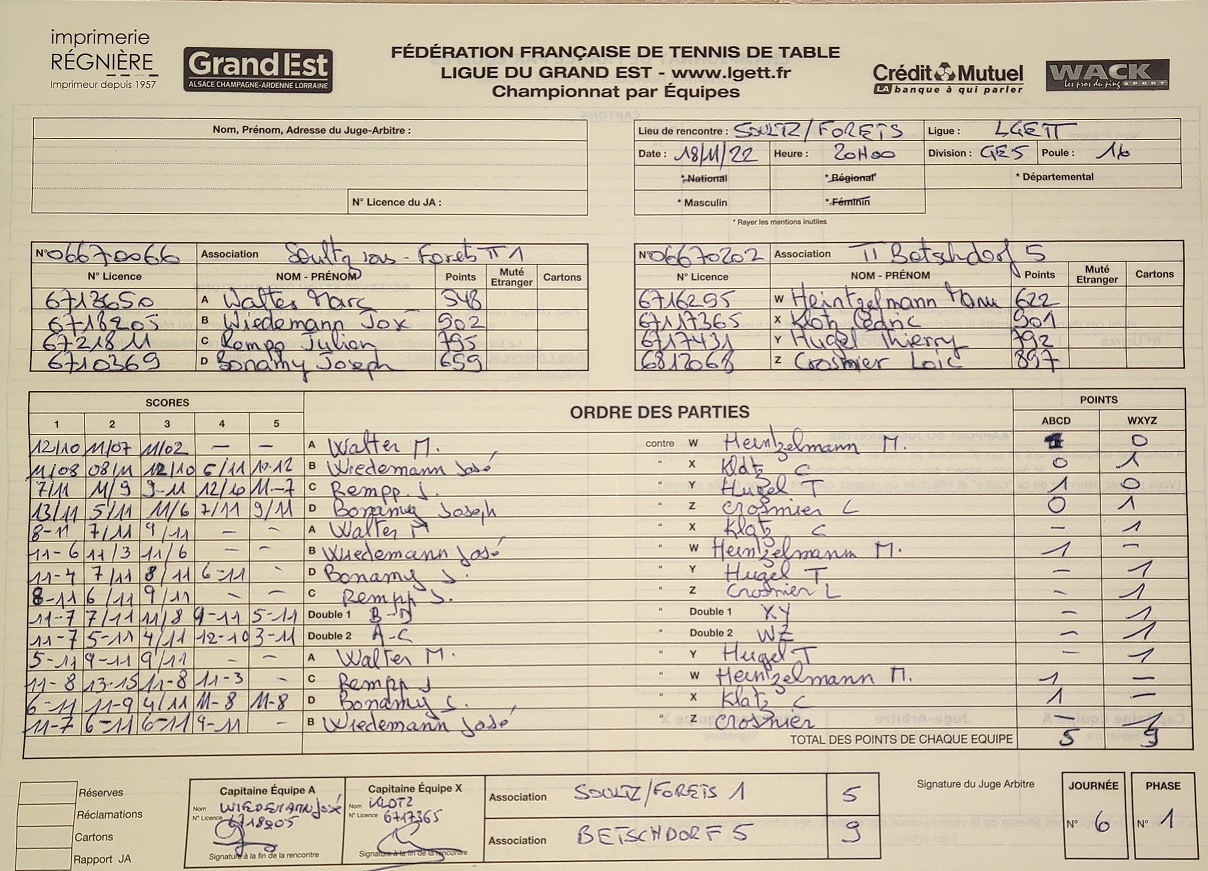 imprimerie
RÉGNIÈRE
Imprimeur depuis 1957
Grand Est
ALSACE CHAMPAGNE-ARDENNE LORRAINE
FÉDÉRATION FRANÇAISE DE TENNIS DE TABLE
LIGUE DU GRAND EST - www.lgett.fr
Championnat par Équipes
Crédit Mutuel
LA banque à qui parler
WACK
les pros du ping SPORT
Nom, Prénom, Adresse du Juge-Arbitre :
N° Licence du JA :
Lieu de rencontre : SOULTZ/FORETS Ligue : LGETT
Date : 18/11/22 Heure : 20H00 Division : GE5 Poule : 16
* National * Régional * Départemental
* Masculin * Féminin
* Rayer les mentions inutiles
N° 06670066 Association Soultz sous-Forets TT 1
N° Licence NOM - PRÉNOM Points Muté Etranger Cartons
A Walter Marc 548
6718205 B Wiedemann José 902
6721811 C Rempp Julian 795
6710369 D Bonamy Joseph 659
N° 06670202 Association TT Betschdorf 5
N° Licence NOM - PRÉNOM Points Muté Etranger Cartons
6716295 W Heintzelmann Manu 622
67117365 X Klotz Cédric 901
6717431 Y Hugel Thierry 792
6812068 Z Crosnier Loic 897
SCORES ORDRE DES PARTIES POINTS
1 2 3 4 5 ABCD WXYZ
12/10 11/07 11/02 — — A Walter M. contre W Heintzelmann M. 1 0
11/08 08/11 12/10 6/11 10-12 B Wiedemann José " X Klotz C 0 1
7/11 11/9 9-11 12/10 11-7 C Rempp J. " Y Hugel T 1 0
13/11 5/11 11/6 7/11 9/11 D Bonamy Joseph " Z Crosnier L 0 1
8-11 7/11 9/11 - - A Walter M " X Klotz C - 1
11-6 11/3 11/6 - - B Wiedemann José " W Heintzelmann M. 1 -
11-4 7/11 8/11 6-11 - D Bonamy J. " Y Hugel T - 1
8-11 6/11 9/11 - - C Rempp J. " Z Crosnier L - 1
11-7 7/11 11/8 9-11 5-11 Double 1 B-D " Double 1 XY - 1
11-7 5-11 4/11 12-10 3-11 Double 2 A-C " Double 2 WZ - 1
5-11 9-11 9/11 - - A Walter M. " Y Hugel T - 1
11-8 13-15 11-8 11-3 - C Rempp J " W Heintzelmann M. 1 -
6-11 11-9 4/11 11-8 11-8 D Bonamy J. " X Klotz C 1 -
11-7 6-11 6-11 9-11 - B Wiedemann José " Z Crosnier - 1
TOTAL DES POINTS DE CHAQUE EQUIPE 5 9
Réserves
Réclamations
Cartons
Rapport JA
Capitaine Équipe A
Nom WIEDEMANN José
N° Licence 6718205
Signature à la fin de la rencontre
Capitaine Équipe X
Nom KLOTZ
N° Licence 6717365
Signature à la fin de la rencontre
Association SOULTZ/FORETS 1 5
Association BETSCHDORF 5 9
Signature du Juge Arbitre
JOURNÉE
N° 6
PHASE
N° 1